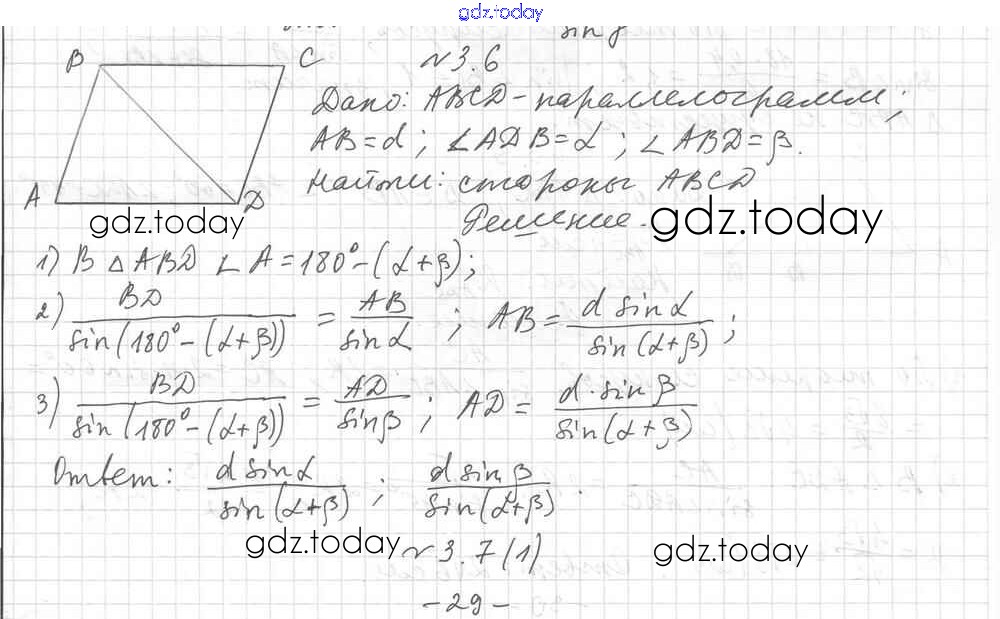 gdz.today
sin β
B C №3.6
Дано: ABCD-параллелограмм;
AB=d; ∠ADB=α; ∠ABD=β.
A D Найти: стороны ABCD
gdz.today Решение. gdz.today
1) В △ABD ∠A=180°-(α+β);
2) BD/sin(180°-(α+β)) = AB/sin α; AB = d sin α/sin(α+β);
3) BD/sin(180°-(α+β)) = AD/sin β; AD = d·sin β/sin(α+β)
Ответ: d sin α/sin(α+β); d sin β/sin(α+β).
gdz.today №3.7(1) gdz.today
-29-